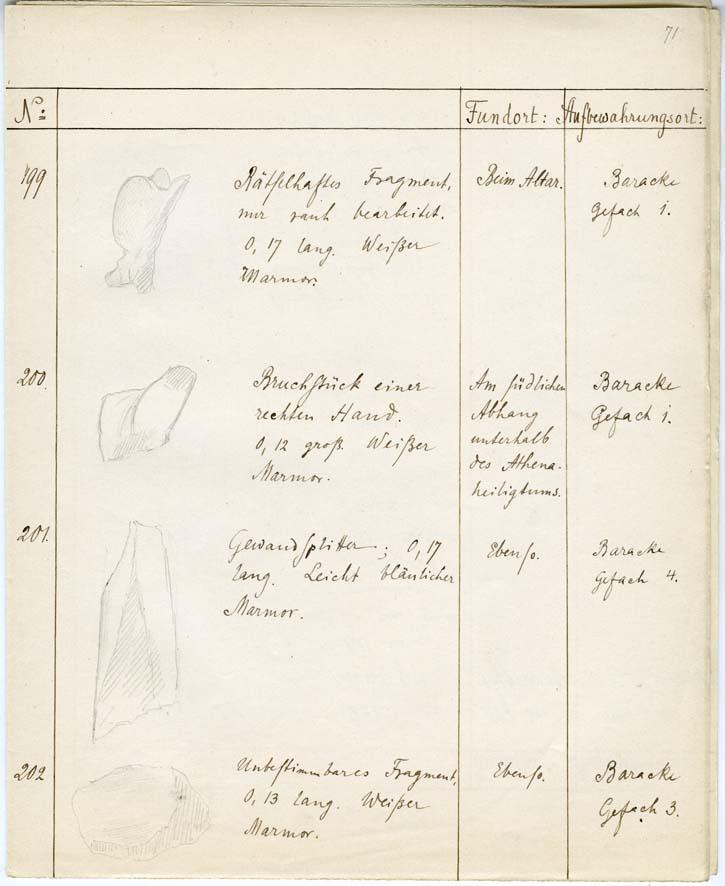 71
No: Fundort: Aufbewahrungsort:
199 Rätselhaftes Fragment, Beim Altar. Baracke
nur rauh bearbeitet. Gefach 1.
0,17 lang. Weißer
Marmor.
200. Bruchstück einer Am südlichen Baracke
rechten Hand. Abhang Gefach 1.
0,12 groß. Weißer unterhalb
Marmor. des Athena-
heiligtums.
201. Gewandsplitter; 0,17 Ebenso. Baracke
lang. Leicht bläulicher Gefach 4.
Marmor.
202 Unbestimmbares Fragment, Ebenso. Baracke
0,13 lang. Weißer Gefach 3.
Marmor.